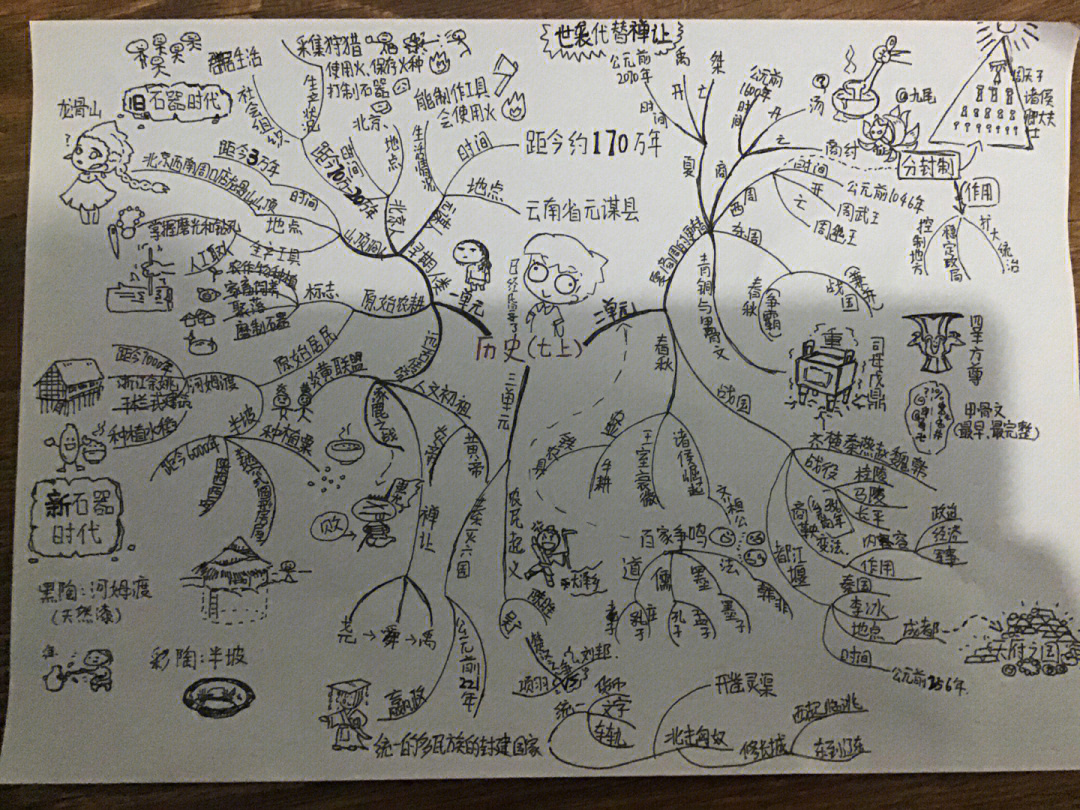 世袭代替禅让
龙骨山
旧石器时代
群居生活
社会组织
采集狩猎
使用火、保存火种
打制石器
生产状况
能制作工具
会使用火
生活情况
北京
地点
时间
距今约170万年
时间
地点
云南省元谋县
元谋人
北京人
距今70万-20万年
距今3万年
时间
北京西南周口店龙骨山山顶
地点
山顶洞人
掌握磨光和钻孔
人工取火
生产工具
早期人类
一单元
农作物种植
家畜饲养
聚落
磨制石器
标志
原始农耕
原始居民
距今7000年
浙江余姚
干栏式建筑
种植水稻
河姆渡
半坡
种植粟
距今6000年
新石器
时代
黑陶:河姆渡
(天然漆)
彩陶:半坡
炎黄联盟
涿鹿之战
人文初祖
炎帝
黄帝
败
禅让
尧→舜→禹
历史(七上)
二单元
三单元
公元前
2070年
时间
禹
开
桀
亡
夏
公元前
1600年
时间
汤
开
亡
商纣
九尾
商
西周
时间
公元前1046年
开
周武王
亡
周幽王
东周
春秋
争霸
战国
周天子
诸侯
卿大夫
士
分封制
作用
控制地方
稳定政局
扩大统治
夏商周的更替
青铜与甲骨文
重
司母戊鼎
四羊方尊
甲骨文
(最早、最完整)
春秋
农具
牛耕
王室衰微
诸侯崛起
齐桓公
百家争鸣
道
儒
墨
法
老子
庄子
孔子
孟子
墨子
韩非
战国
齐楚秦燕赵魏韩
战役
桂陵
马陵
长平
商鞅变法
内容
政治
经济
军事
作用
都江堰
秦国
李冰
地点
成都
天府之国
时间
公元前256年
秦灭六国
公元前221年
嬴政
统一的多民族的封建国家
农民起义
大泽乡
陈胜
楚汉之争
刘邦
项羽
统一
货币
文字
车轨
开凿灵渠
北击匈奴
修长城
西起临洮
东到辽东